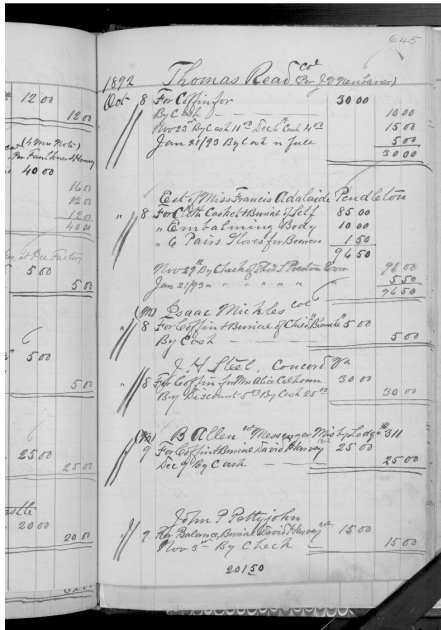 645
1892 Thomas Read Col (Per J W Neubaner)
Oct 8 For Coffin for 30 00
By Cash — 10 00
Nov 23rd By Cash 11 00 Dec 6th Cash 4 00 15 00
Jan 21/93 By Cash in full 5 00
30 00
Est of Miss Francis Adelaide Pendleton
" 8 For Cloth Casket & Burial of Self 85 00
" Embalming Body 10 00
" 6 Pairs Gloves for Bearers 1 50
96 50
Nov 29th By Check of Thos S Preston 
Jan 21/93 " " " " 5 50
96 50
Isaac Mickles Col
" 8 For Coffin & Burial of Child 5 00
By Cash — 5 00
J. H Steel. Concord Va
" 8 For Coffin for Mrs Alice Calhoun 30 00
By Discount 5 00 By Cash 25 00 30 00
B Allen Col Messenger Lodge 311
9 For Coffin & Burial David Harvey 25 00
Dec By Cash — 25 00
John P Pettyjohn
" 9 For Balance Burial David Harvey Col 15 00
Nov 3rd By Check 15 00
201 50
12 00
18 00
(4 Mo Note)
40 00
16 00
12 00
12 00
40 00
5 00
5 00
5 00
5 00
25 00
25 00
20 00
20 00